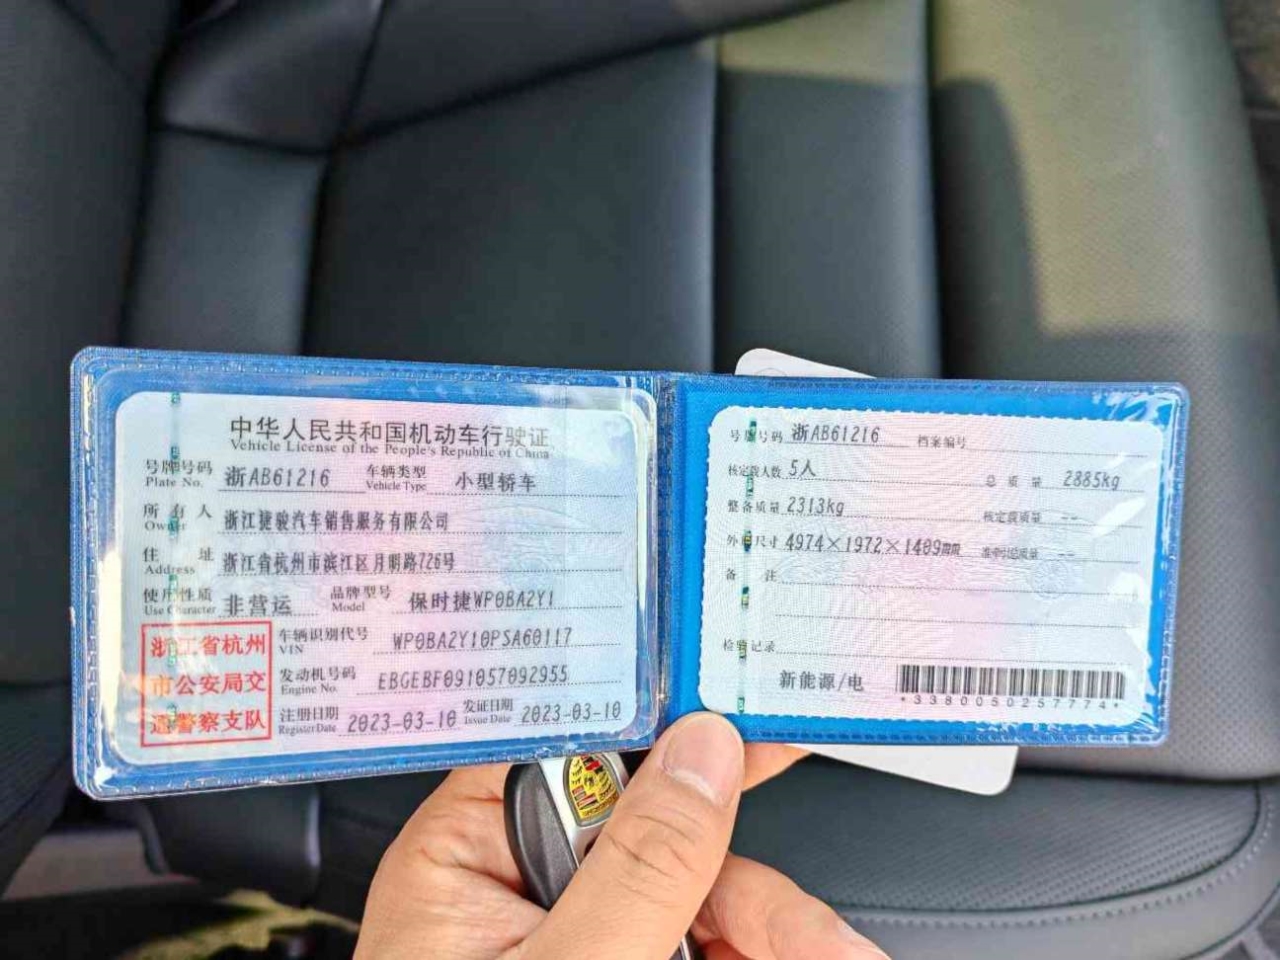 中华人民共和国机动车行驶证
Vehicle License of the People's Republic of China
号牌号码 浙AB61216 车辆类型 小型轿车
Plate No. Vehicle Type
所有人 浙江捷骏汽车销售服务有限公司
Owner
住址 浙江省杭州市滨江区月明路726号
Address
使用性质 非营运 品牌型号 保时捷WP0BA2Y1
Use Character Model
浙江省杭州
市公安局交
通警察支队
车辆识别代号 WP0BA2Y10PSA60117
VIN
发动机号码 EBGEBF091057092955
Engine No.
注册日期 2023-03-10 发证日期 2023-03-10
Register Date Issue Date
号牌号码 浙AB61216 档案编号
核定载人数 5人 总质量 2885kg
整备质量 2313kg 核定载质量 --
外廓尺寸 4974×1972×1409mm 准牵引总质量 --
备注
检验记录
新能源/电
*3380050257774*